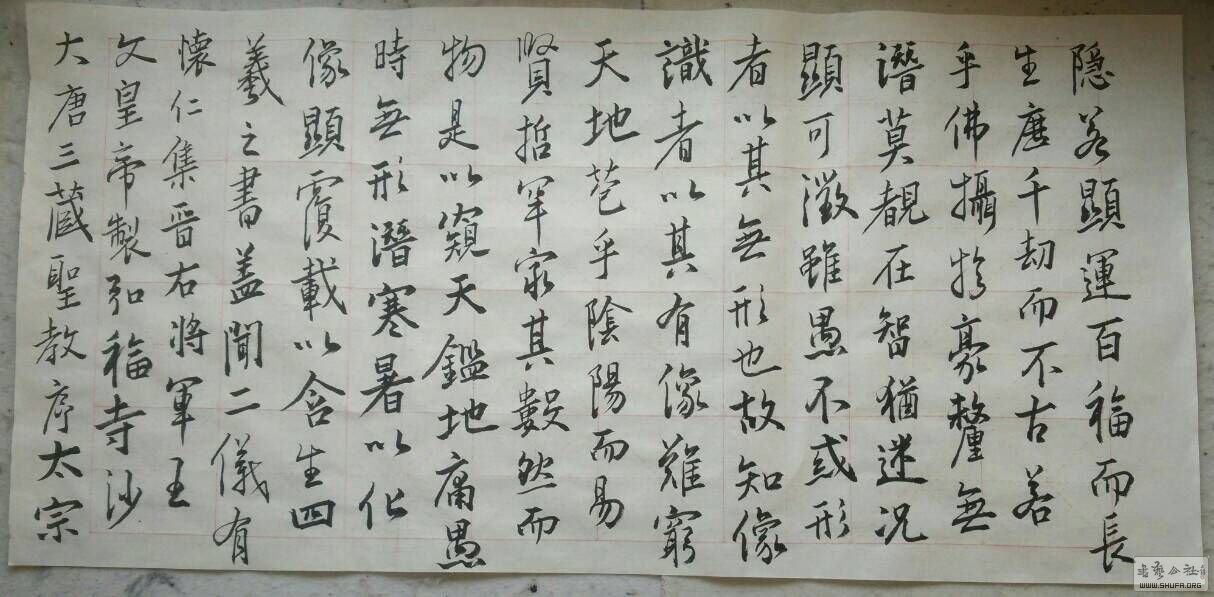 大唐三藏聖教序太宗
文皇帝製弘福寺沙
懷仁集晋右將軍王
羲之書盖聞二儀有
像顯覆載以含生四
時無形潛寒暑以化
物是以窺天鑑地庸愚
賢哲罕窮其數然而
天地苞乎陰陽而易
識者以其有像難窮
者以其無形也故知像
顯可徵雖愚不惑形
潛莫覩在智猶迷况
乎佛攝於豪釐無
生歷千劫而不古若
隱若顯運百福而長
书艺公社
WWW.SHUFA.ORG